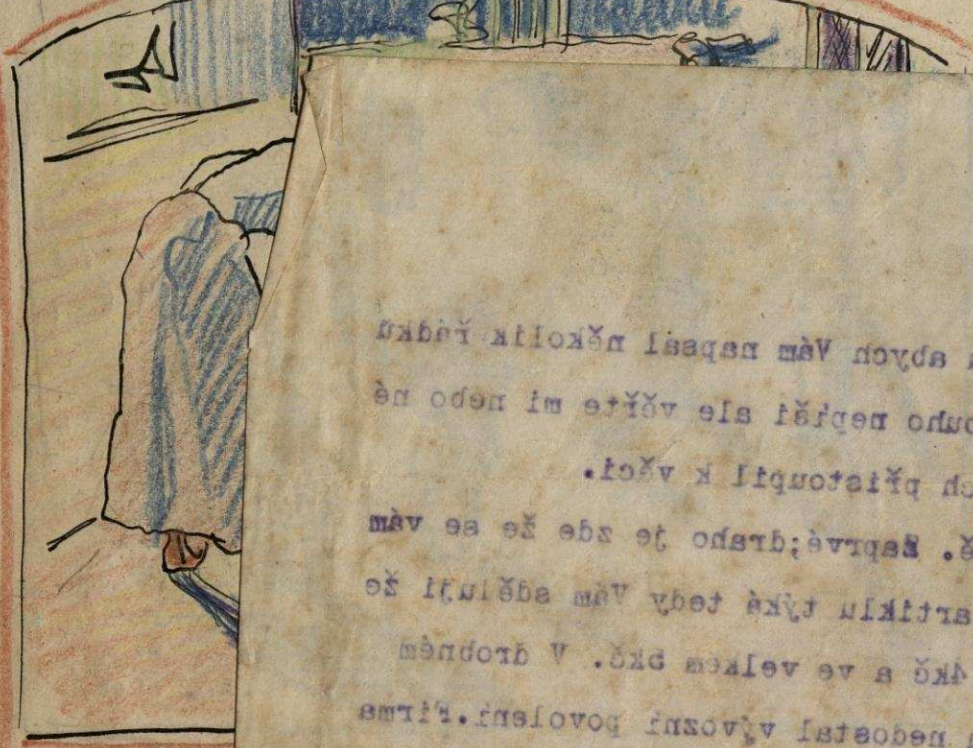 abych Vám napsal několik řádků
ouho nepíši ale věřte mi nebo né
ch přistoupil k věci.
š. Zaprvé;draho je zde že se vám
artiklu týká tedy Vám sděluji že
4kč a ve velkem V drobném
nedostal vývozní povolení.Firma